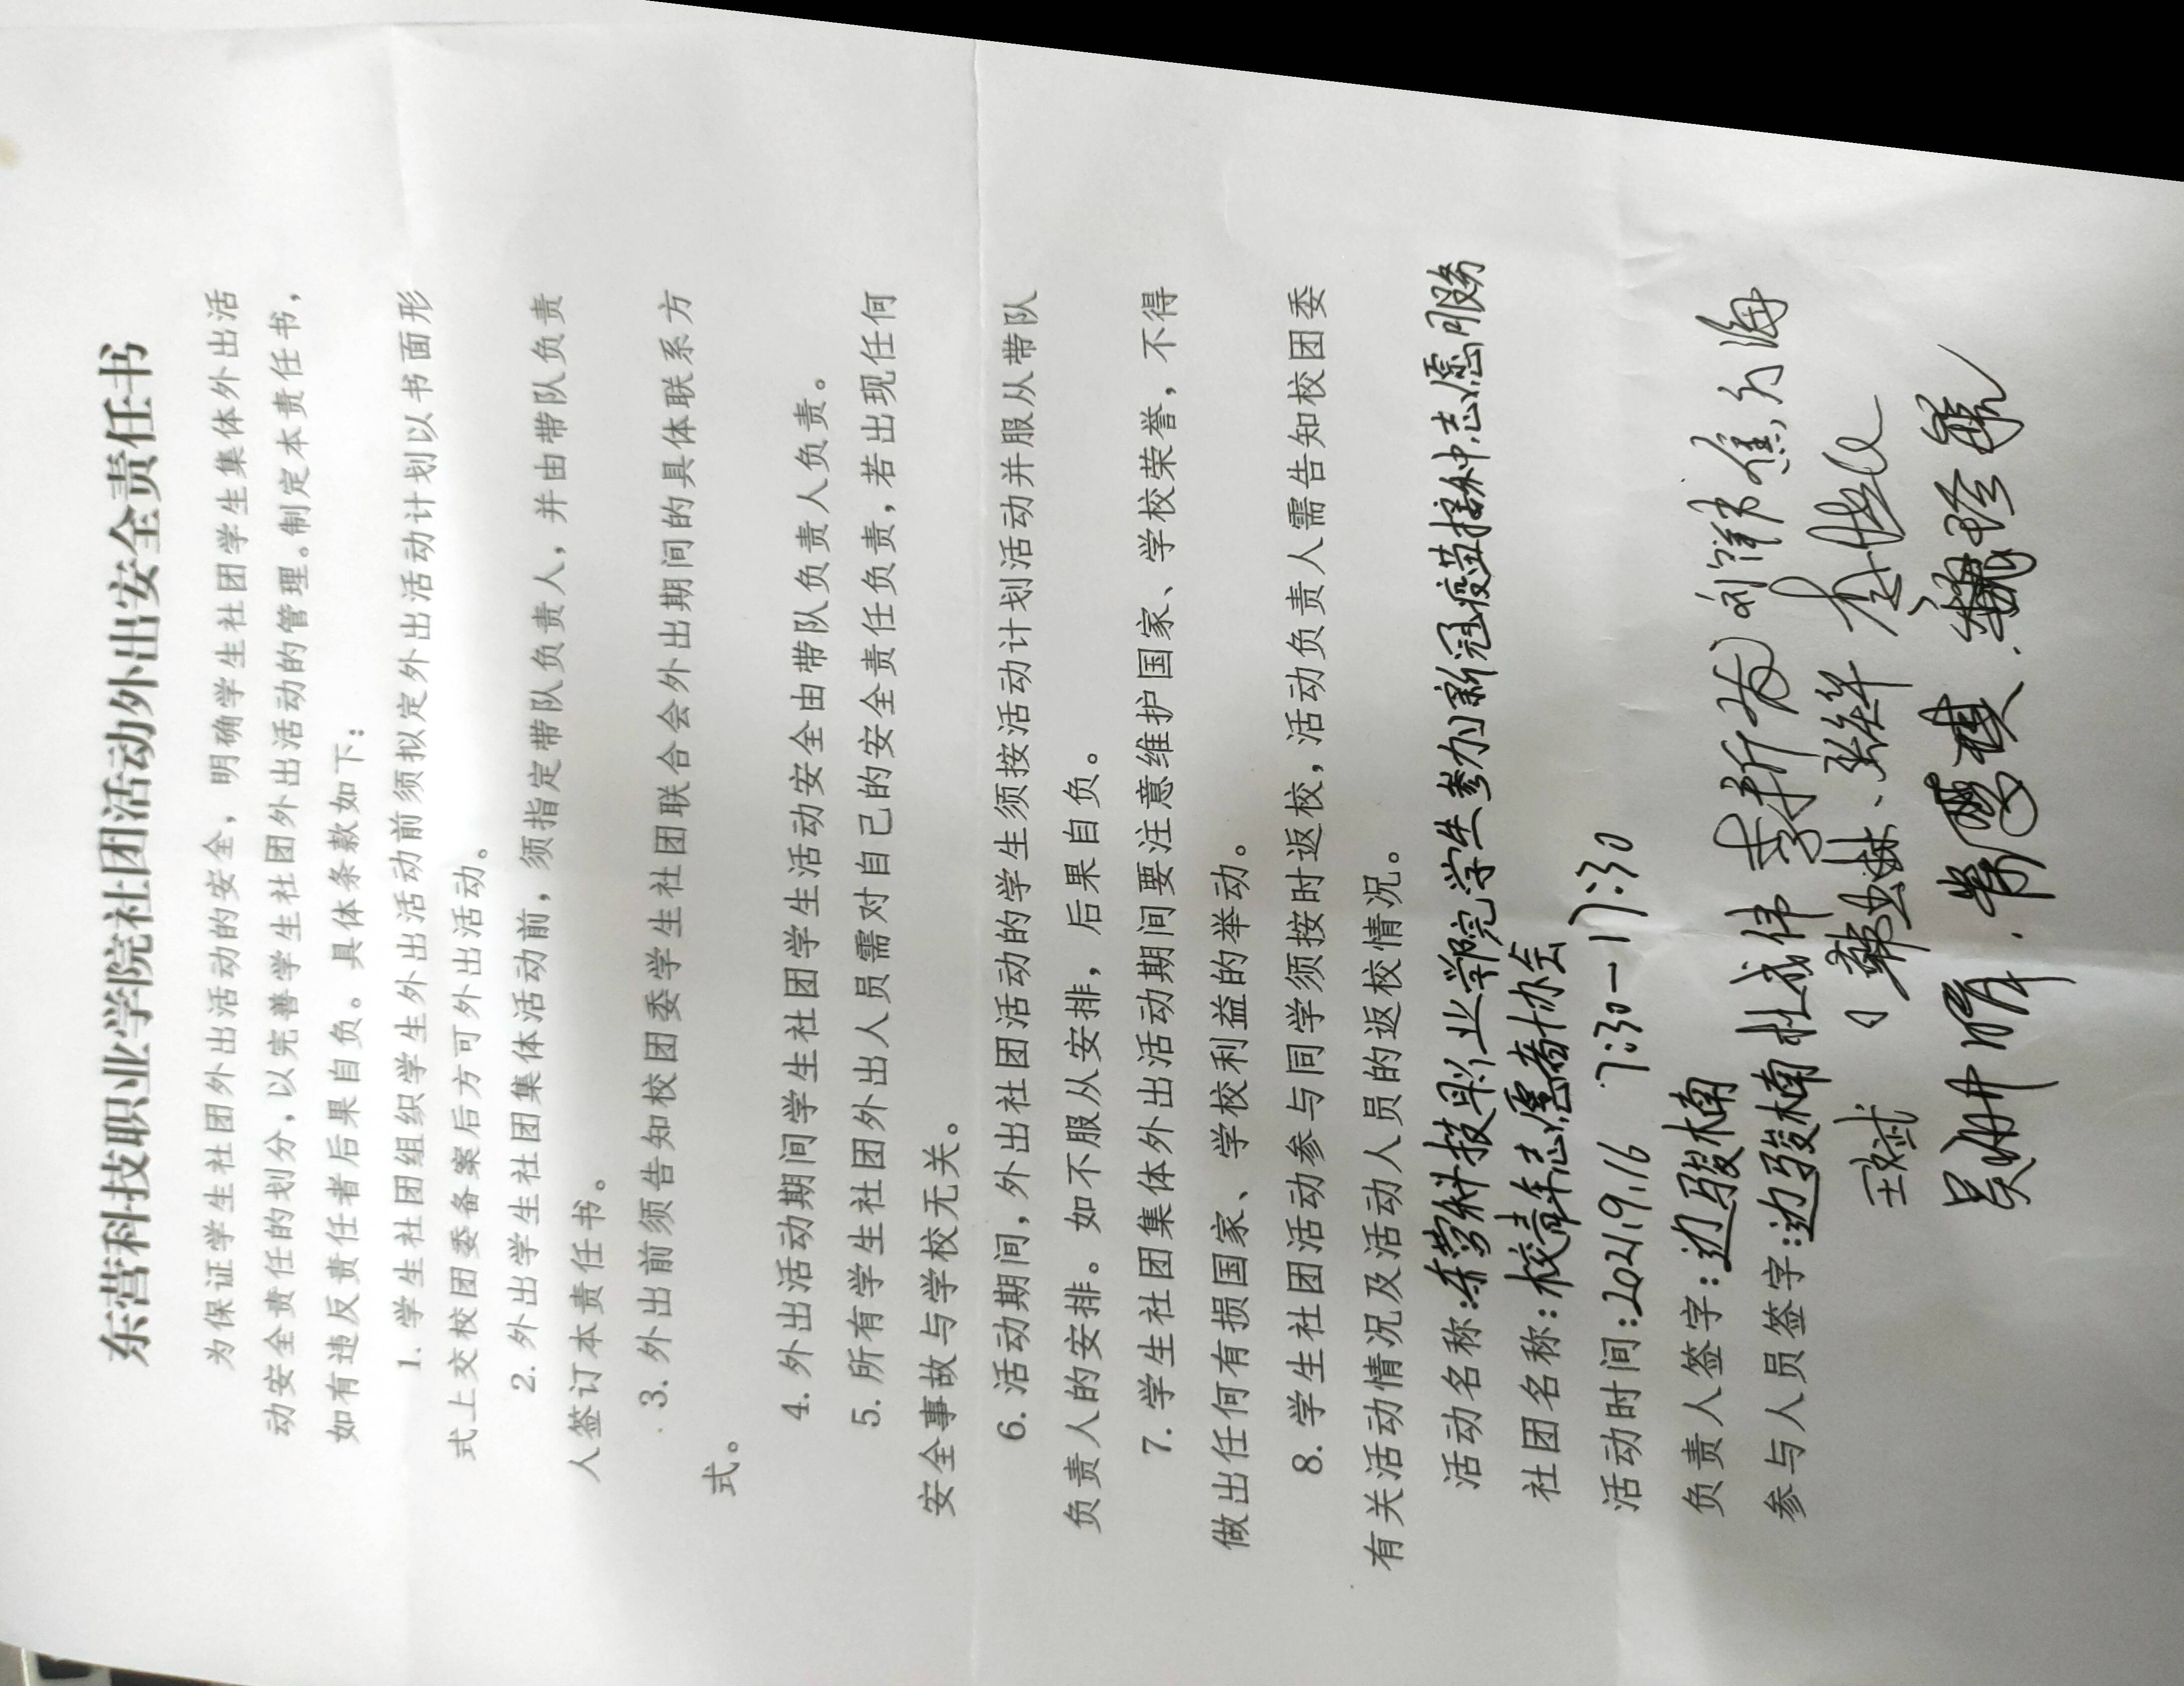 东营科技职业学院社团活动外出安全责任书
为保证学生社团外出活动的安全，明确学生社团学生集体外出活
动安全责任的划分，以完善学生社团外出活动的管理。制定本责任书，
如有违反责任者后果自负。具体条款如下：
1. 学生社团组织学生外出活动前须拟定外出活动计划以书面形
式上交校团委备案后方可外出活动。
2. 外出学生社团集体活动前，须指定带队负责人，并由带队负责
人签订本责任书。
3. 外出前须告知校团委学生社团联合会外出期间的具体联系方
式。
4. 外出活动期间学生社团学生活动安全由带队负责人负责。
5. 所有学生社团外出人员需对自己的安全责任负责，若出现任何
安全事故与学校无关。
6. 活动期间，外出社团活动的学生须按活动计划活动并服从带队
负责人的安排。如不服从安排，后果自负。
7. 学生社团集体外出活动期间要注意维护国家、学校荣誉，不得
做出任何有损国家、学校利益的举动。
8. 学生社团活动参与同学须按时返校，活动负责人需告知校团委
有关活动情况及活动人员的返校情况。
活动名称：东营科技职业学院学生参加新冠疫苗接种志愿服务
社团名称：校青年志愿者协会
活动时间：2021.9.16 7:30—17:30
负责人签字：边骏楠
参与人员签字：边骏楠 杜成伟 李折
王斌 韩
吴